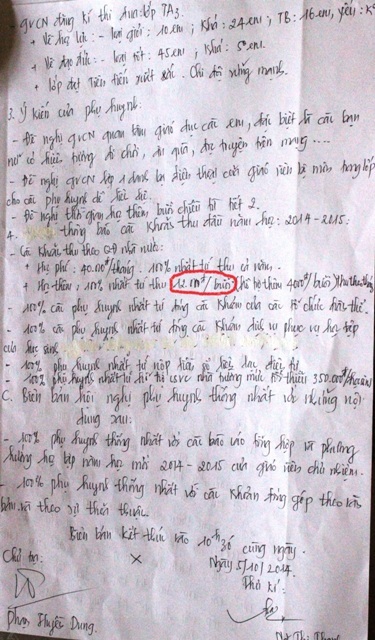 - GVCN đăng kí thi đua: lớp 7A3.
+ Về học lực: - loại giỏi: 10em; Khá: 24em; TB: 16em, yếu: K
+ Về đạo đức: - loại tốt: 45em; Khá: 5em.
+ lớp đạt tiên tiến xuất sắc. Chi đội vững mạnh.
3. Ý kiến của phụ huynh:
- Đề nghị GVCN quan tâm giáo dục các em, đặc biệt là các bạn
nữ có hiện tượng đi chơi, ăn quà, đọc truyện trên mạng ....
- Đề nghị GVCN lập 1 danh bạ điện thoại của giáo viên bộ môn trong lớp
cho các phụ huynh để liên hệ.
- Đề nghị thời gian học thêm, buổi chiều từ tiết 2.
4. thông báo các khoản thu đầu năm học: 2014-2015.
- Các khoản thu theo QĐ nhà nước:
+ Học phí: 40.000đ/tháng: 100% nhất trí thu cả năm.
+ Học thêm: 100% nhất trí thu 12.000đ/buổi 4000đ/buổi
- 100% các phụ huynh nhất trí đóng các khoản của các tổ chức đoàn thể.
- 100% các phụ huynh nhất trí đóng các khoản dịch vụ phục vụ học tập
của học sinh.
- 100% phụ huynh nhất trí nộp tiền sổ liên lạc điện tử.
- 100% phụ huynh nhất trí hỗ trợ CSVC nhà trường mức tối thiểu 350.000đ/học sinh
C. Biên bản hội nghị phụ huynh thống nhất với những nội
dung sau:
- 100% phụ huynh thống nhất với các báo cáo tổng hợp và phương
hướng học tập năm học mới 2014-2015 của giáo viên chủ nhiệm.
- 100% phụ huynh thống nhất với các khoản đóng góp theo văn
bản và theo sự thỏa thuận.
Biên bản kết thúc vào 10h30 cùng ngày.
Ngày 5/10/2014.
Chủ tọa: Thư kí:
Phạm Huyền Dung.